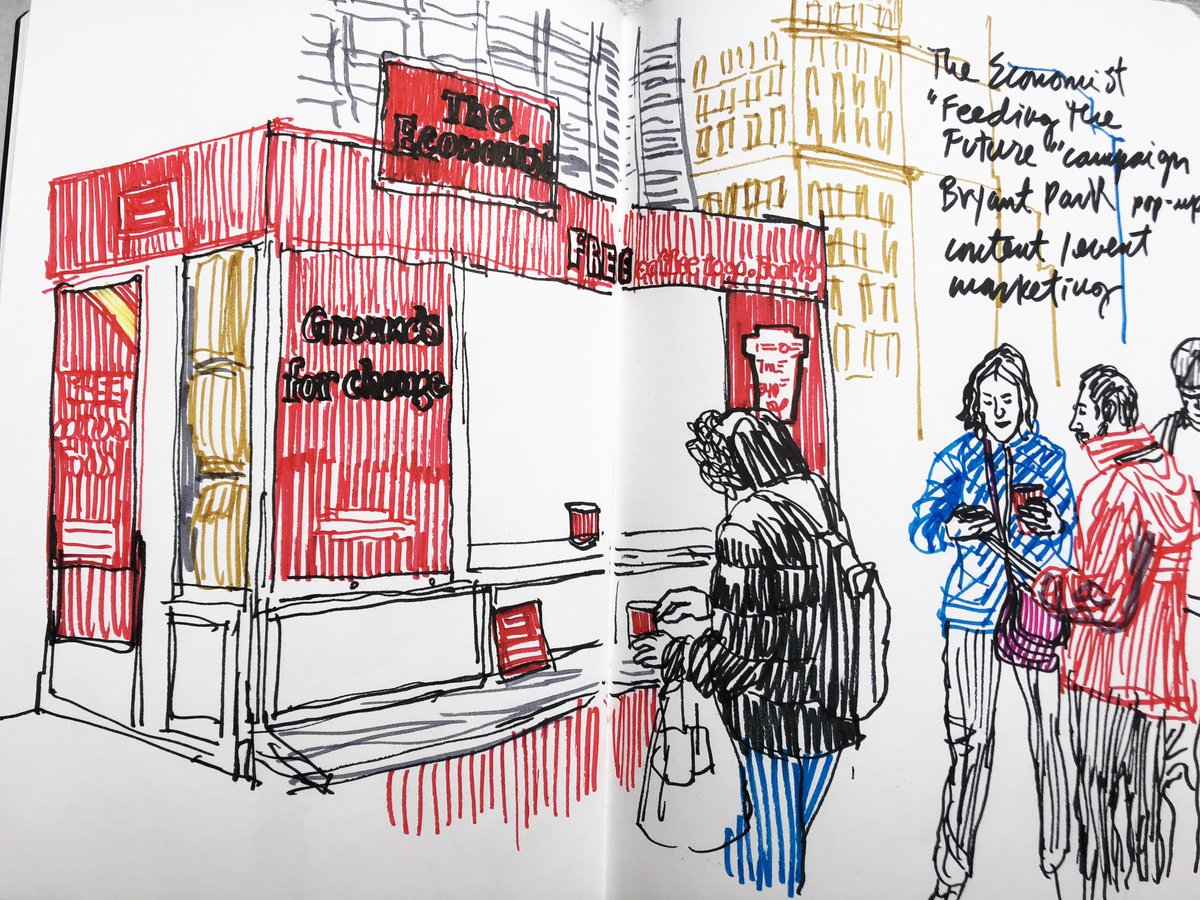 The
Economist
FREE coffee to go.
Grounds
for change
FREE
The Economist
"Feeding the
Future" campaign
Bryant Park pop-up
content / event
marketing